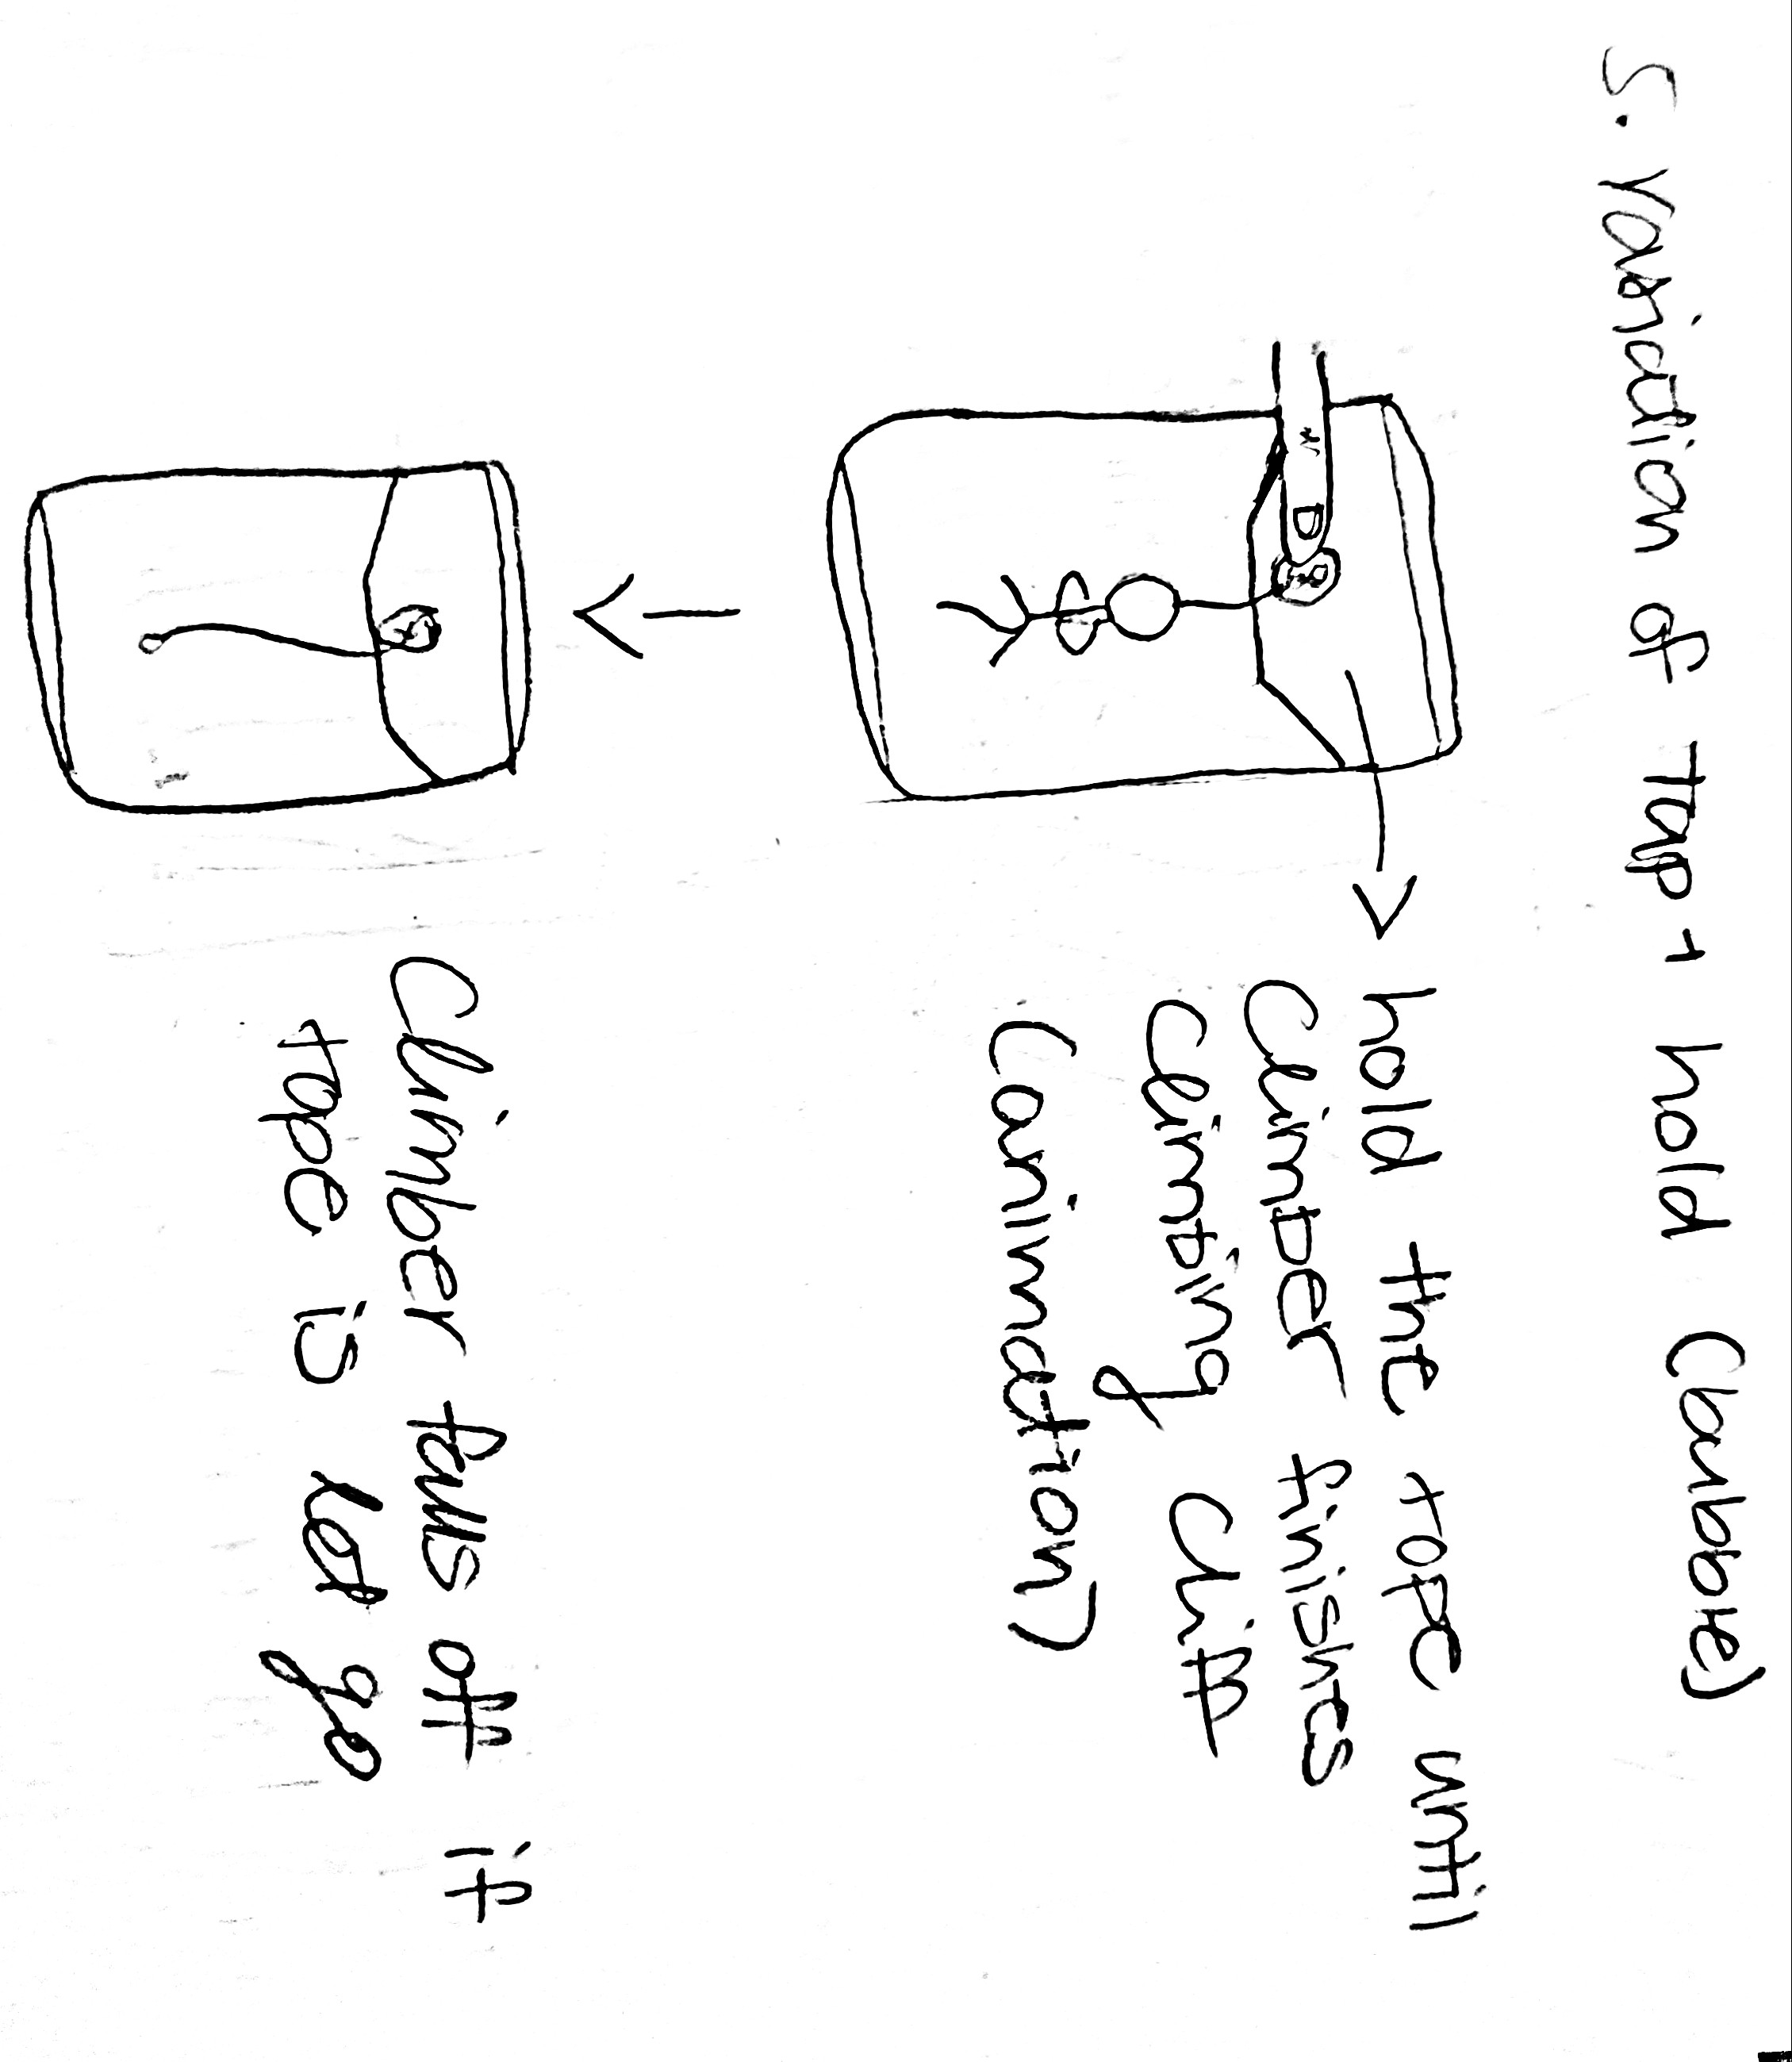 5. variation of Tap + hold (bubble)
hold the rope until
climber finishes
climbing cliff
(animation)
Climber falls off if
rope is let go